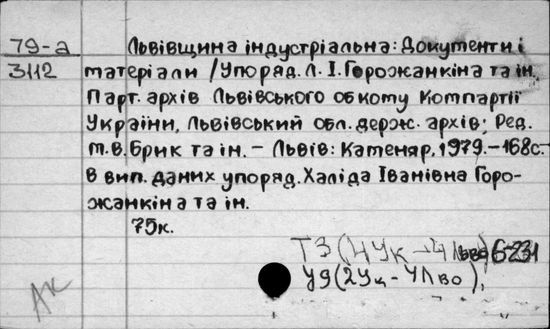 79-а Львівщина індустріальна: Документи і
3112 матеріали / Упоряд. Л. І. Горожанкіна та ін.
Парт. архів Львівського обкому Компартії
України, Львівський обл. держ. архів; Ред.
т. в. Брик та ін. – Львів: Каменяр, 1979. – 168с.
В вип. даних упоряд. Халіда Іванівна Горо-
жанкіна та ін.
75к.
Т3(4Ук-4Льво)6-231
У9(2Ук-4Льво),
АК